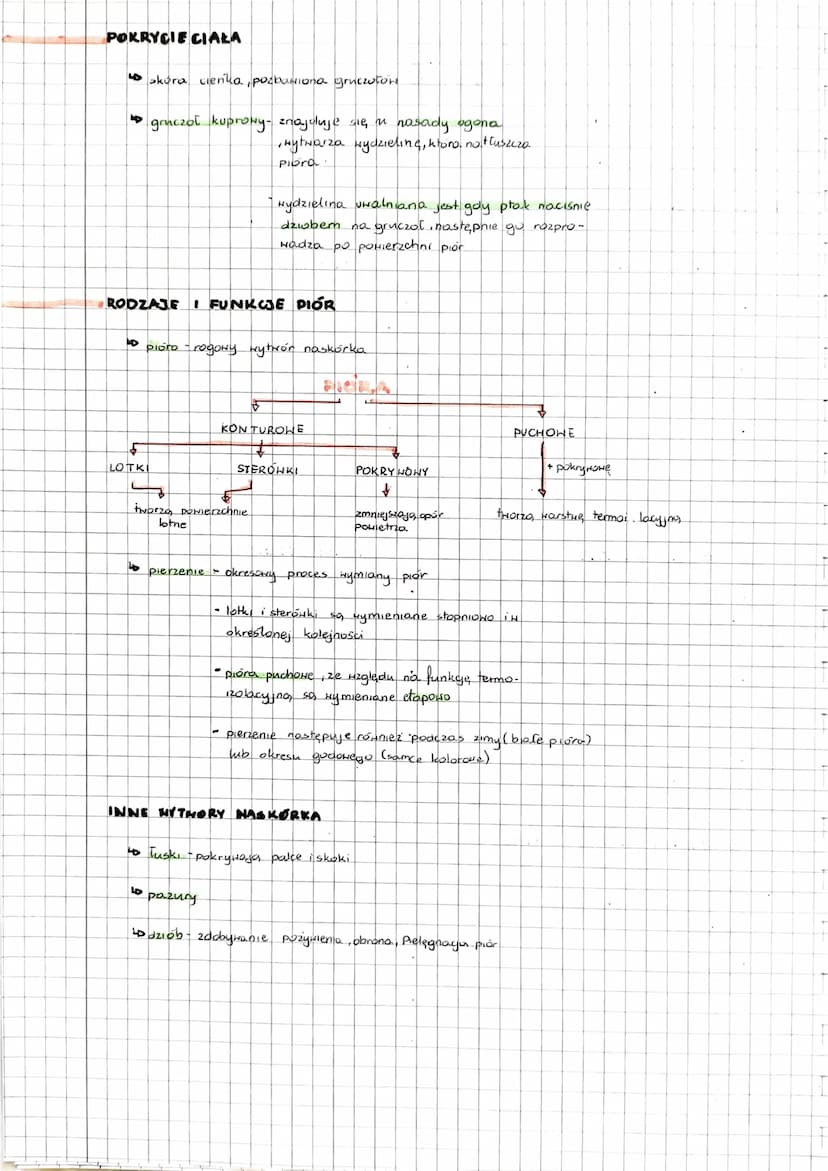 POKRYCIE CIAŁA
↳ skóra cienka, pozbawiona gruczołów
↳ gruczoł kuprowy- znajduje się u nasady ogona
, wytwarza wydzielinę, która natłuszcza
pióra
- wydzielina uwalniana jest gdy ptak naciśnie
dziobem na gruczoł, następnie go rozpro-
wadza po powierzchni piór
RODZAJE I FUNKCJE PIÓR
↳ pióro - rogowy wytwór naskórka
PIÓRA
KONTUROWE
PUCHOWE
LOTKI STERÓWKI POKRYWOWY
+ pokrywowe
tworzą powierzchnie
lotne
zmniejszają opór
powietrza
tworzą warstwę termoi lacyjną
↳ pierzenie - okresowy proces wymiany piór
- lotki i sterówki są wymieniane stopniowo i w
określonej kolejności
- pióra puchowe, ze względu na funkcję termo-
izolacyjną są wymieniane etapowo
- pierzenie następuje również podczas zimy (białe pióra)
lub okresu godowego (samce kolorowe)
INNE WYTWORY NASKÓRKA
↳ łuski - pokrywają palce i skoki
↳ pazury
↳ dziób - zdobywanie pożywienia, obrona, Pielęgnacja piór